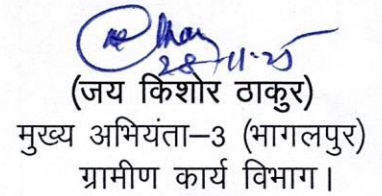 28-11-25
(जय किशोर ठाकुर)
मुख्य अभियंता–3 (भागलपुर)
ग्रामीण कार्य विभाग।